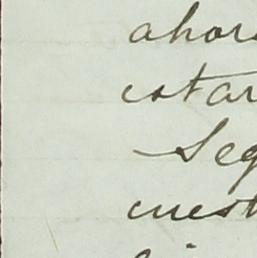 ahora
estar
— Seg
cuest